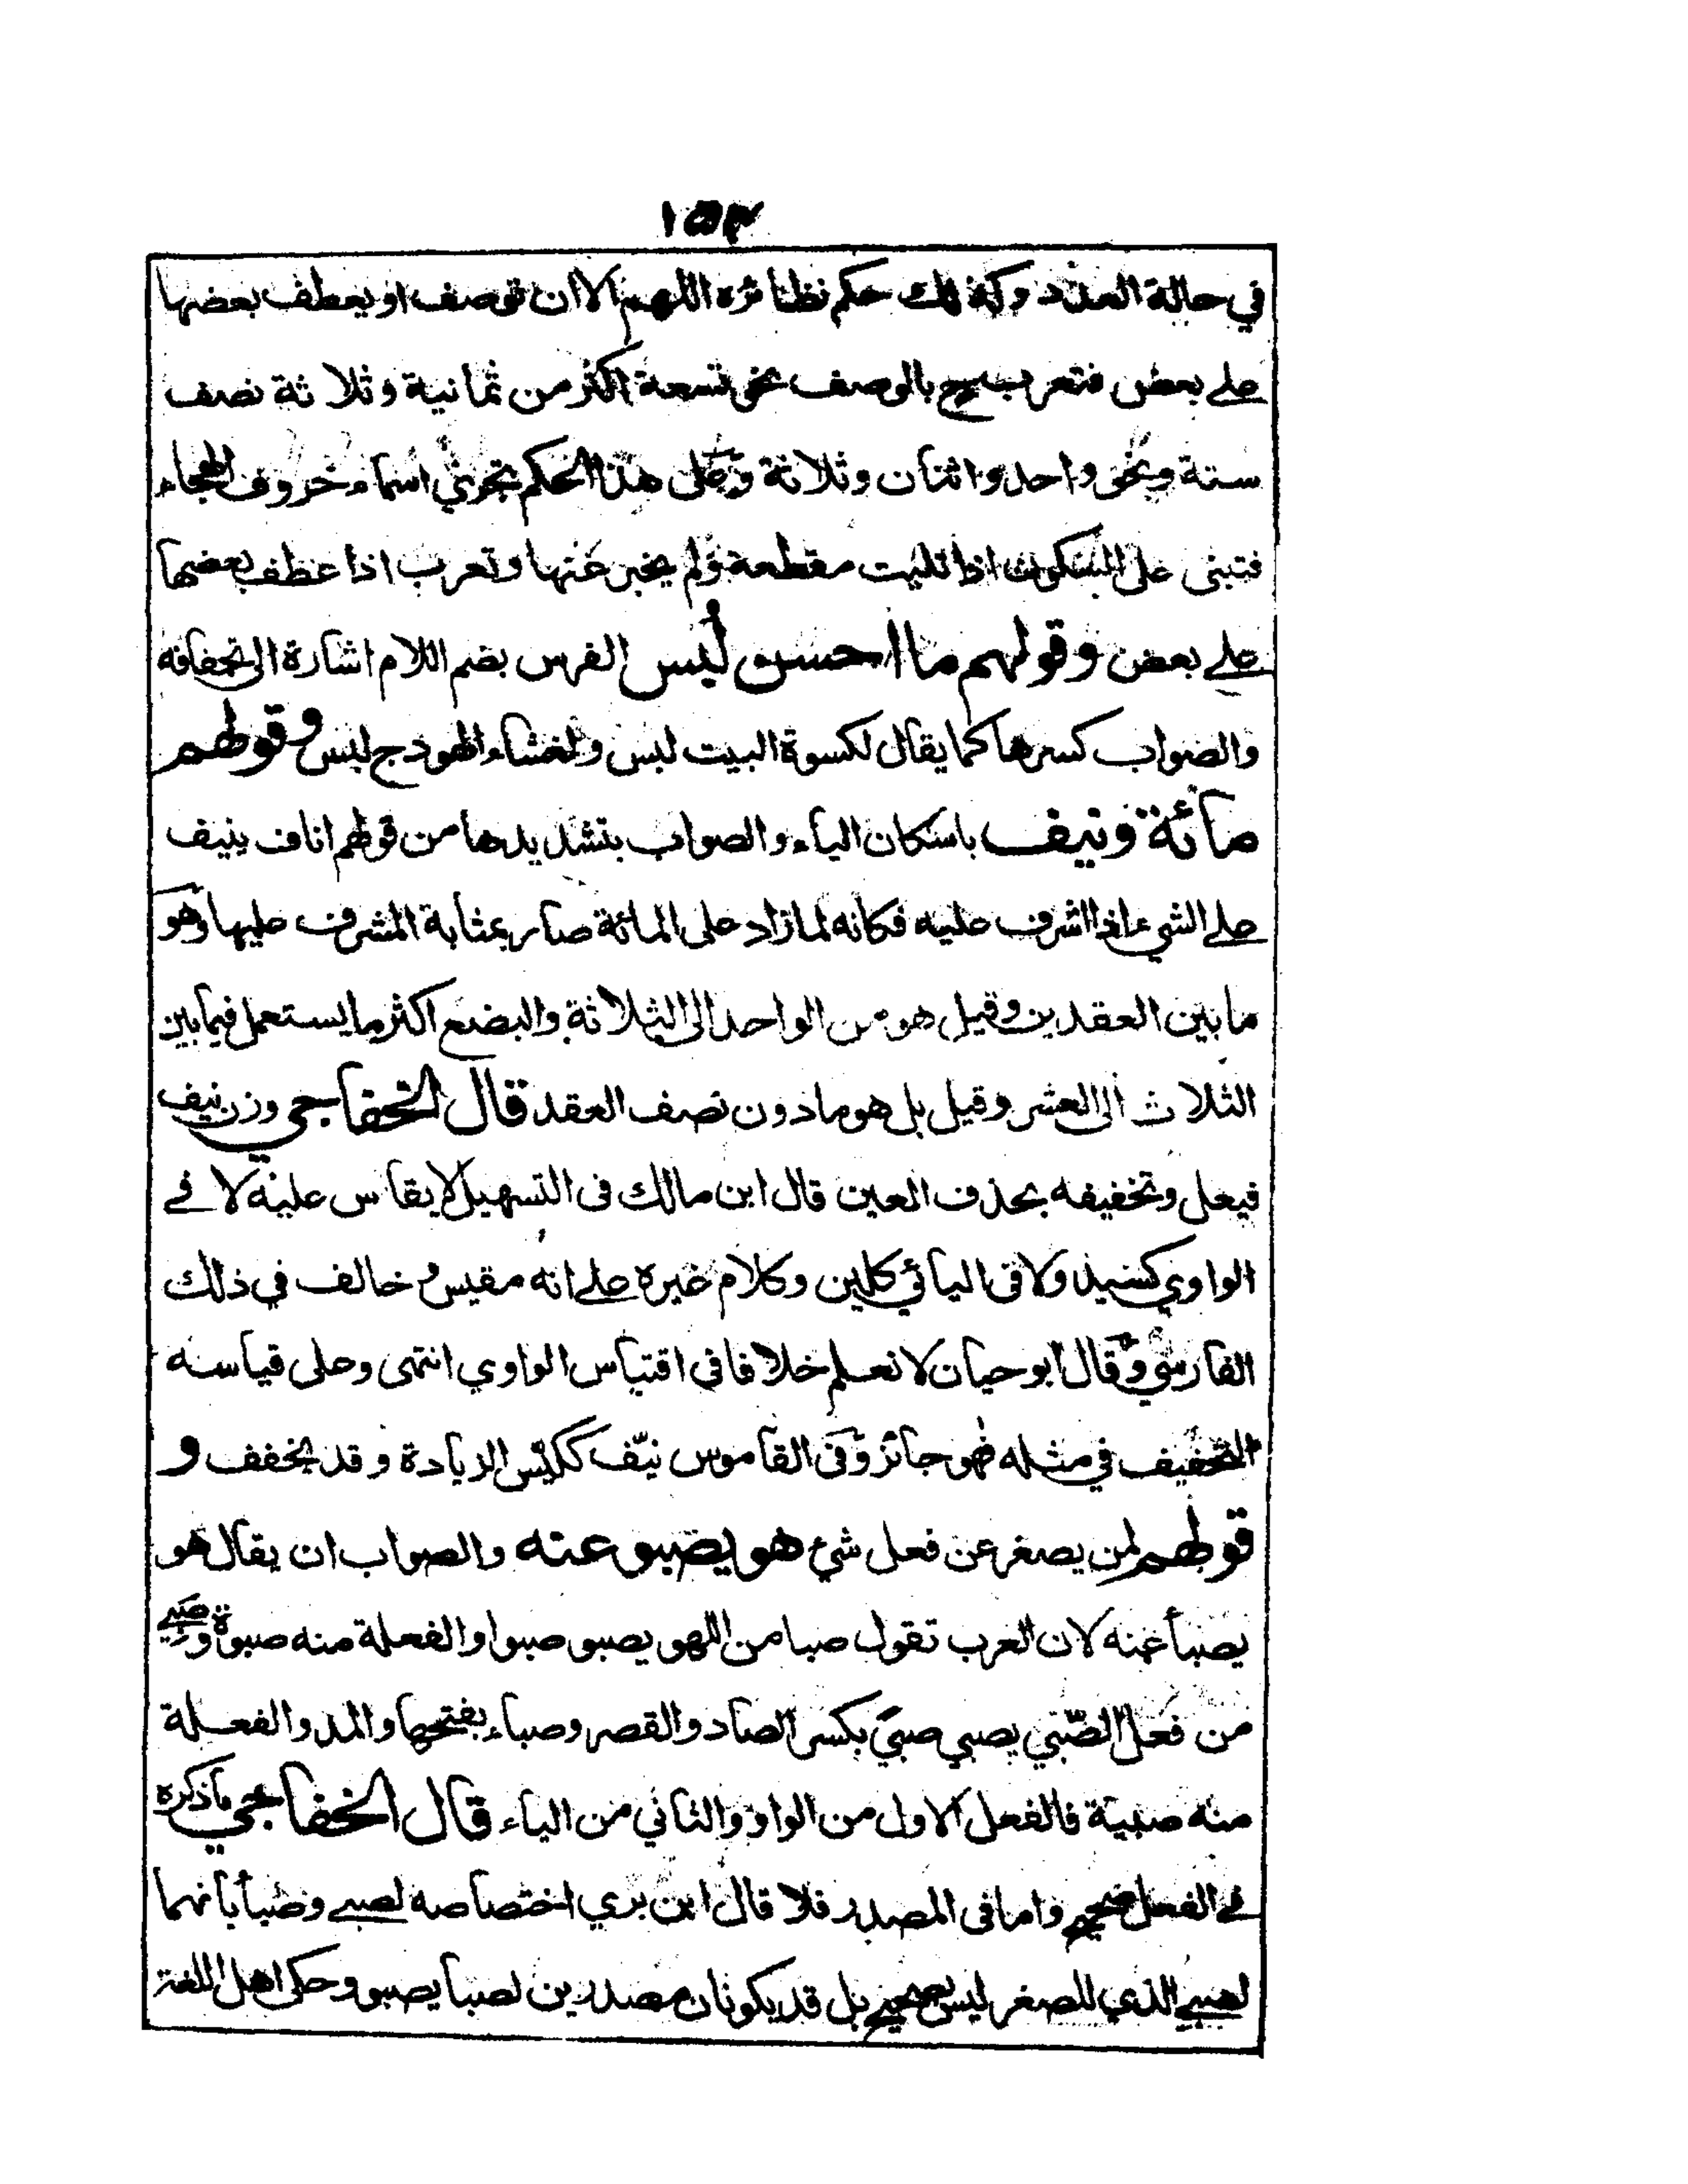 ١٥٣
في حالة العدد وكذلك حكم نظائره اللهم الا ان توصف او يعطف بعضها
على بعض فتعرب ح بالوصف نحو تسعة اكثر من ثمانية وثلاثة نصف
ستة ونحو واحد واثنان وثلاثة وعلى هذا الحكم تجري اسماء حروف الهجاء
فتبنى على السكون اذا تليت مقطعة ولم يخبر عنها وتعرب اذا عطف بعضها
على بعض وقولهم ما احسن لُبس الفرس بضم اللام اشارة الى تجفافه
والصواب كسرها كما يقال لكسوة البيت لبس ولغشاء الهودج لبس وقولهم
مائة ونيف باسكان الياء والصواب بتشديدها من قولهم اناف ينيف
على الشيء اذا اشرف عليه فكانه لما زاد على المائة صار بمثابة المشرف عليها وهو
ما بين العقدين وقيل هو من الواحد الى الثلاثة والبضع اكثر ما يستعمل فيما بين
الثلاث الى العشر وقيل بل هو ما دون نصف العقد قال الخفاجي وزن نيف
فيعل وتخفيفه بحذف العين قال ابن مالك فى التسهيل لا يقاس عليه لا في
الواوي كسيد ولا فى اليائي كلين وكلام غيره على انه مقيس وخالف في ذلك
الفارسي وقال ابو حيان لا نعلم خلافا فى اقتياس الواوي انتهى وعلى قياسه
التخفيف في مثله فهو جائز وفى القاموس نيّف ككيّس الزيادة وقد يخفف و
قولهم لمن يصغر عن فعل شئ هو يصبو عنه والصواب ان يقال هو
يصبأ عنه لان العرب تقول صبا من اللهو يصبو صبوا والفعلة منه صبوة وصبي
من فعل الصّبي يصبي صبىً بكسر الصاد والقصر وصباء بفتحها والمد والفعلة
منه صبية فالفعل الاول من الواو والثاني من الياء قال الخفاجي ما ذكره
في الفعل صحيح واما فى المصدر فلا قال ابن بري اختصاصه لصبي وصبأ بانهما
لصبي الذي للصغر ليس بصحيح بل قد يكونان مصدرين لصبا يصبو وحكى اهل اللغة